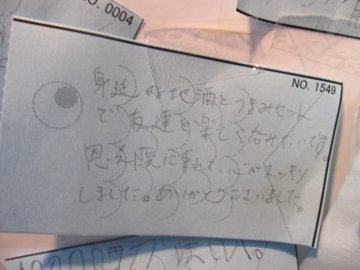 NO. 0004
NO. 1549
身延の地酒とつまみセット
で友達と楽しく呑みたいです。
恩院に来れて、心がスッキリ
しました。ありがとうございました。
がほしい。